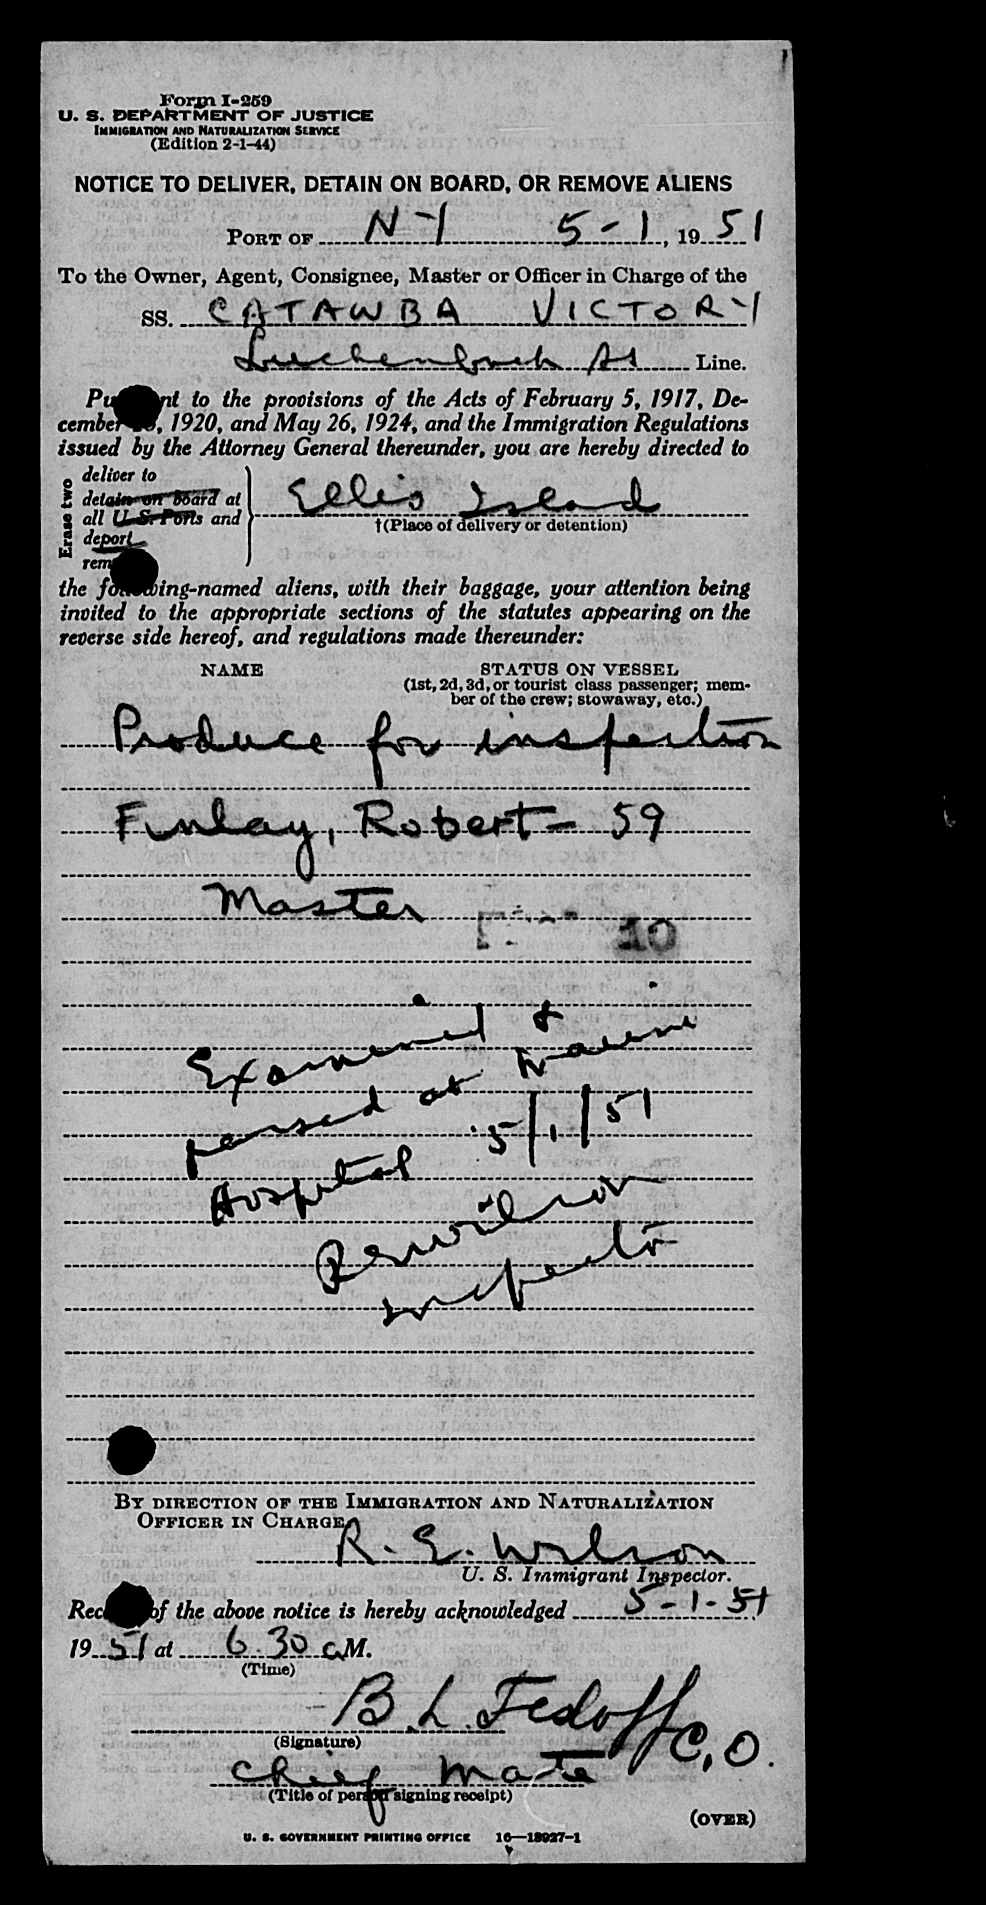 Form I-259
U. S. DEPARTMENT OF JUSTICE
IMMIGRATION AND NATURALIZATION SERVICE
(Edition 2-1-44)
NOTICE TO DELIVER, DETAIN ON BOARD, OR REMOVE ALIENS
PORT OF NY 5-1, 1951
To the Owner, Agent, Consignee, Master or Officer in Charge of the
SS. CATAWBA VICTORY
Luckenbach SS Line.
Pu nt to the provisions of the Acts of February 5, 1917, De-
cember , 1920, and May 26, 1924, and the Immigration Regulations
issued by the Attorney General thereunder, you are hereby directed to
Erase two
deliver to
detain on board at
all U. S. Ports and
deport
rem
Ellis Island
†(Place of delivery or detention)
the following-named aliens, with their baggage, your attention being
invited to the appropriate sections of the statutes appearing on the
reverse side hereof, and regulations made thereunder:
NAME STATUS ON VESSEL
(1st, 2d, 3d, or tourist class passenger; mem-
ber of the crew; stowaway, etc.)
Produce for inspection
Finlay, Robert - 59
Master
10
Examined &
passed at Marine
Hospital 5/1/51
REWilson
Inspector
BY DIRECTION OF THE IMMIGRATION AND NATURALIZATION
OFFICER IN CHARGE
R. E. Wilson
U. S. Immigrant Inspector.
Rec of the above notice is hereby acknowledged 5-1-51
1951 at 6.30 aM.
(Time)
B. L. Fedoff C.O.
(Signature)
Chief Mate
(Title of person signing receipt)
(OVER)
U. S. GOVERNMENT PRINTING OFFICE 16—18927-1